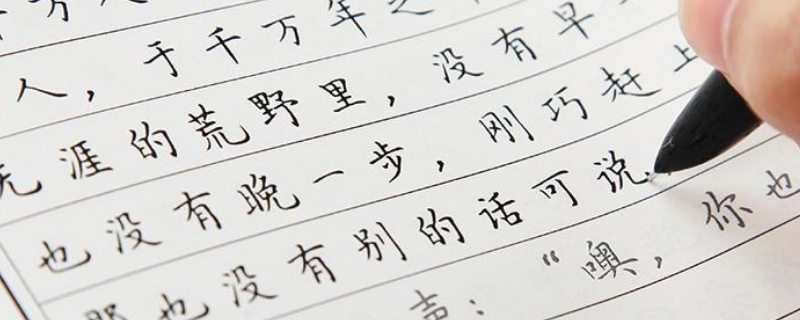 人，于千万年之
无涯的荒野里，没有早
也没有晚一步，刚巧赶上
那也没有别的话可说
声：“噢，你也